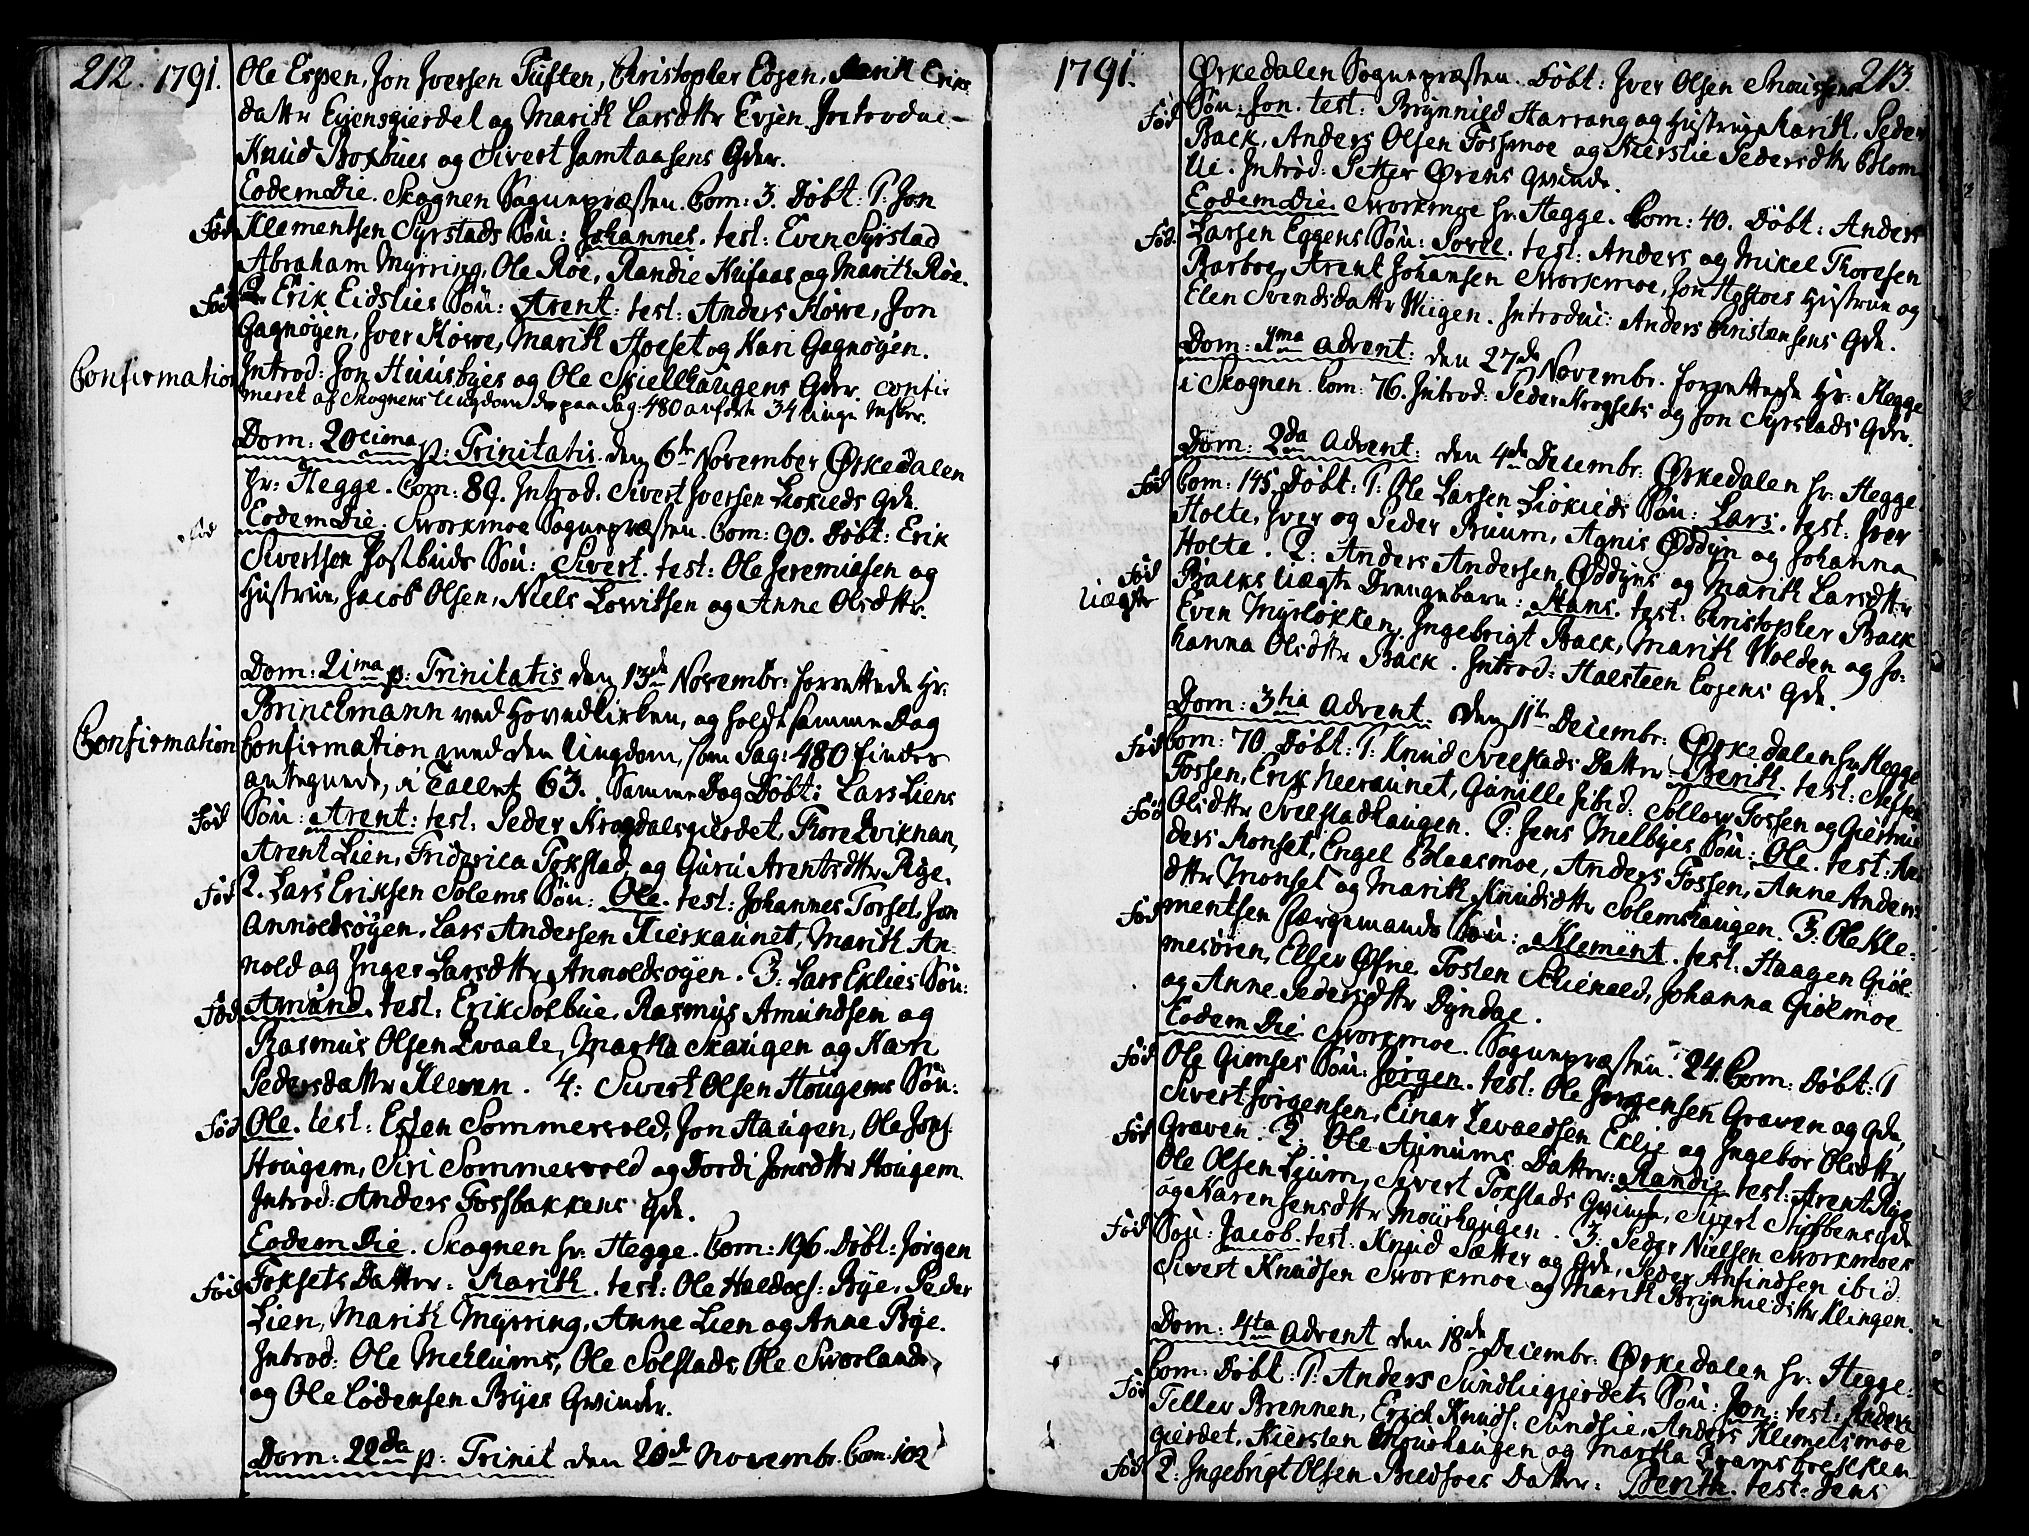 212. 1791.
Ole Espen, Jon Iversen Tuften, Christopher Evjen, Marit Eriks
datter Evjensgierdet og Marith Larsdttr Evjen. Introduc:
Knud Boxbues og Sivert Jamtaasens Qdr.
Eodem Die. Skognen Sognepræsten. Com: 3. Døbt: 1. Jon
Fød Klementsen Syrstads Søn: Johannes. test: Even Syrstad
Abraham Myrring, Ole Røe, Randie Hufaas og Marith Røe.
Fød 2. Erik Eidslies Søn: Arent. test: Anders Howe, Jon
Gagnøyen, Iver Howe, Marith Hoeset og Kari Gagnøyen.
Confirmation Introd: Jon Huusbyes og Ole Skiellhaugens Qdr. Confir
meret af Skognens Ungdom de paa Pag: 480 anførte 34 unge Mskr.
Dom: 20cima p: Trinitatis. den 6te November Ørkedalen
Hr: Hegge. Com: 89. Introd. Sivert Iversen Lioxieds Qde.
Fød Eodem Die. Svorkmoe Sognepræsten. Com: 90. Døbt: Erik
Sivertsen Postbuds Søn: Sivert. test: Ole Jeremiesen og
Hustrue, Jacob Olsen, Niels Lowitsen og Anne Olsdttr.
Dom: 21ma p: Trinitatis den 13de Novembr: forrettede Hr:
Brinckmann ved Hovedkirken, og holdt samme Dag
Confirmation Confirmation med den Ungdom, som Pag: 480 findes
antegnede, i Tallet 63. Samme Dag Døbt: Lars Liens
Fød Søn: Arent: test: Peder Krogdalsgierdet, Thore Evjknan,
Arent Lien, Friderica Foxstad og Guru Arentsdttr Rige.
Fød 2. Lars Eriksen Solems Søn: Ole. test: Johannes Forset, Jon
Annoldsøyen, Lars Andersen Kierkaunet, Marith An-
nold og Inger Larsdttr Annoldsøyen. 3: Lars Eklies Søn:
Fød Amund. test: Erik Solbue, Rasmus Amundsen og
Rasmus Olsen Evaale, Martha Skaugen og Karn
Pedersdatter Kleven. 4: Sivert Olsen Hougems Søn:
Fød Ole. test: Esten Sommervold, Jon Haugen, Ole Jons:
Hougem, Siri Sommervold og Dordi Jonsdttr Hougem.
Introd: Anders Fossbakkens Qde.
Eodem Die. Skognen Hr: Hegge. Com: 196. Døbt: Jørgen
Fød Foxsets Datter: Marith. test: Ole Haldors: Bye, Peder
Lien, Marith Myrring, Anne Lien og Anne Bye.
Introd: Ole Mehlums, Ole Solstads, Ole Svorlands,
og Ole Lodensen Byes Qvinder.
Dom: 22da p: Trinit den 20de Novembr. Com: 102
1791. 213.
Ørkedalen Sognepræsten. Døbt: Iver Olsen
Fød Søn: Jon. test: Brynnild Harrang og Hustrue Marith, Peder
Back, Anders Olsen Fossmoe og Kierstie Pedersdttr Blom
lie. Introd: Petter Ørens Qvinde.
Eodem Die. Svorkmoe Hr: Hegge. Com: 40. Døbt: Anders
Fød. Larsen Eggens Søn: Sovel. test: Anders og Mikel Thoresen
Barboe, Arent Johansen Svorkmoe, Jon Hostoes Hustrue og
Elen Svendsdattr Wiigen. Introduc: Anders Christensens Qde.
Dom: 1ma Advent: den 27de Novembr. forrettede Hr: Hegge
i Skognen. Com: 76. Introd: Peder Krogsets og Jon Syrstads Qdr.
Dom: 2da Advent: den 4de Decembr: Ørkedalen Hr: Hegge.
Fød Com: 145. Døbt: 1: Ole Larsen Lioxieds Søn: Lars. test: Iver
Holte, Iver og Peder Buum, Agnis Øddyn og Johanna
Fød Holte. 2: Anders Andersen Øddyns og Marith Larsdttr
Uægte Backs Uægte Drengebarn: Hans. test: Christopher Back
Even Myrlokken, Ingebrigt Back, Marith Wolden og Jo-
hanna Olsdttr Back. Introd: Halsteen Evjens Qde.
Dom: 3tia Advent. den 11te Decembr: Ørkedalen Hr Hegge
Fød Com: 70. Døbt: 1: Knud Svelstads Datter: Berith. test: Steffen
Fossen, Erik Neeraunet, Gunille ibid: Sollow Fossen og Giertrud
Fød Olsdttr Svelstadhaugen. 2: Jens Melbyes Søn: Ole. test: An-
ders Monset, Engel Blaasmoe, Anders Fossen, Anne Anders:
dttr Monset og Marith Knudsdttr Solemshaugen. 3: Ole Kle-
Fød mentsen Færgemands Søn: Klement. test: Haagen Giøl-
mesøren, Eller Øfne, Tosten Schienald, Johanna Giølmoe
og Anne Pedersdttr Dyndal.
Eodem Die. Svorkmoe. Sognepræsten. 24. Com: Døbt: 1
Fød Ole Gumses Søn: Jørgen. test: Ole Jørgensen Graven og Qde,
Sivert Jørgensen, Einar Levaldsen Eklie og Ingebor Olsdttr
Fød Graven. 2: Ole Aunums Datter: Randie test: Arent Rige
Ole Olsen Ljum, Sivert Foxstads Qvinde, Sivert Stubbens Qde
og Karen Jensdttr Mourhaugen. 3: Peder Nielsen Svorkmoes
Fød Søn: Jacob. test: Knud Sætter og Qde, Peder Anfindsen ibid.
Sivert Knudsen Svorkmoe og Marith Brynnildsdttr Klingen.
Dom: 4ta Advent den 18de Decembr: Ørkedalen Hr: Hegge:
Fød Com: Døbt: 1: Anders Sundliegierdets Søn: Jon: test: Anders
Teller Brennen, Erich Knuds: Sundlie, Anders Klemetsmoe
gierdet, Kiersten Mourhaugen og Martha Bramsbrekken
Fød 2: Ingebrigt Olsen Bredsoes Datter: Berith. test: Jens